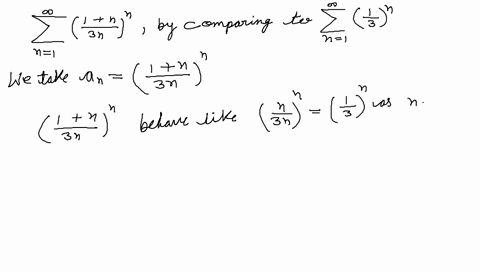 ∑_{n=1}^{∞} ((1+n)/(3n))^n , by comparing to ∑_{n=1}^{∞} (1/3)^n
We take a_n = ((1+n)/(3n))^n
((1+n)/(3n))^n behave like (n/(3n))^n = (1/3)^n as n.